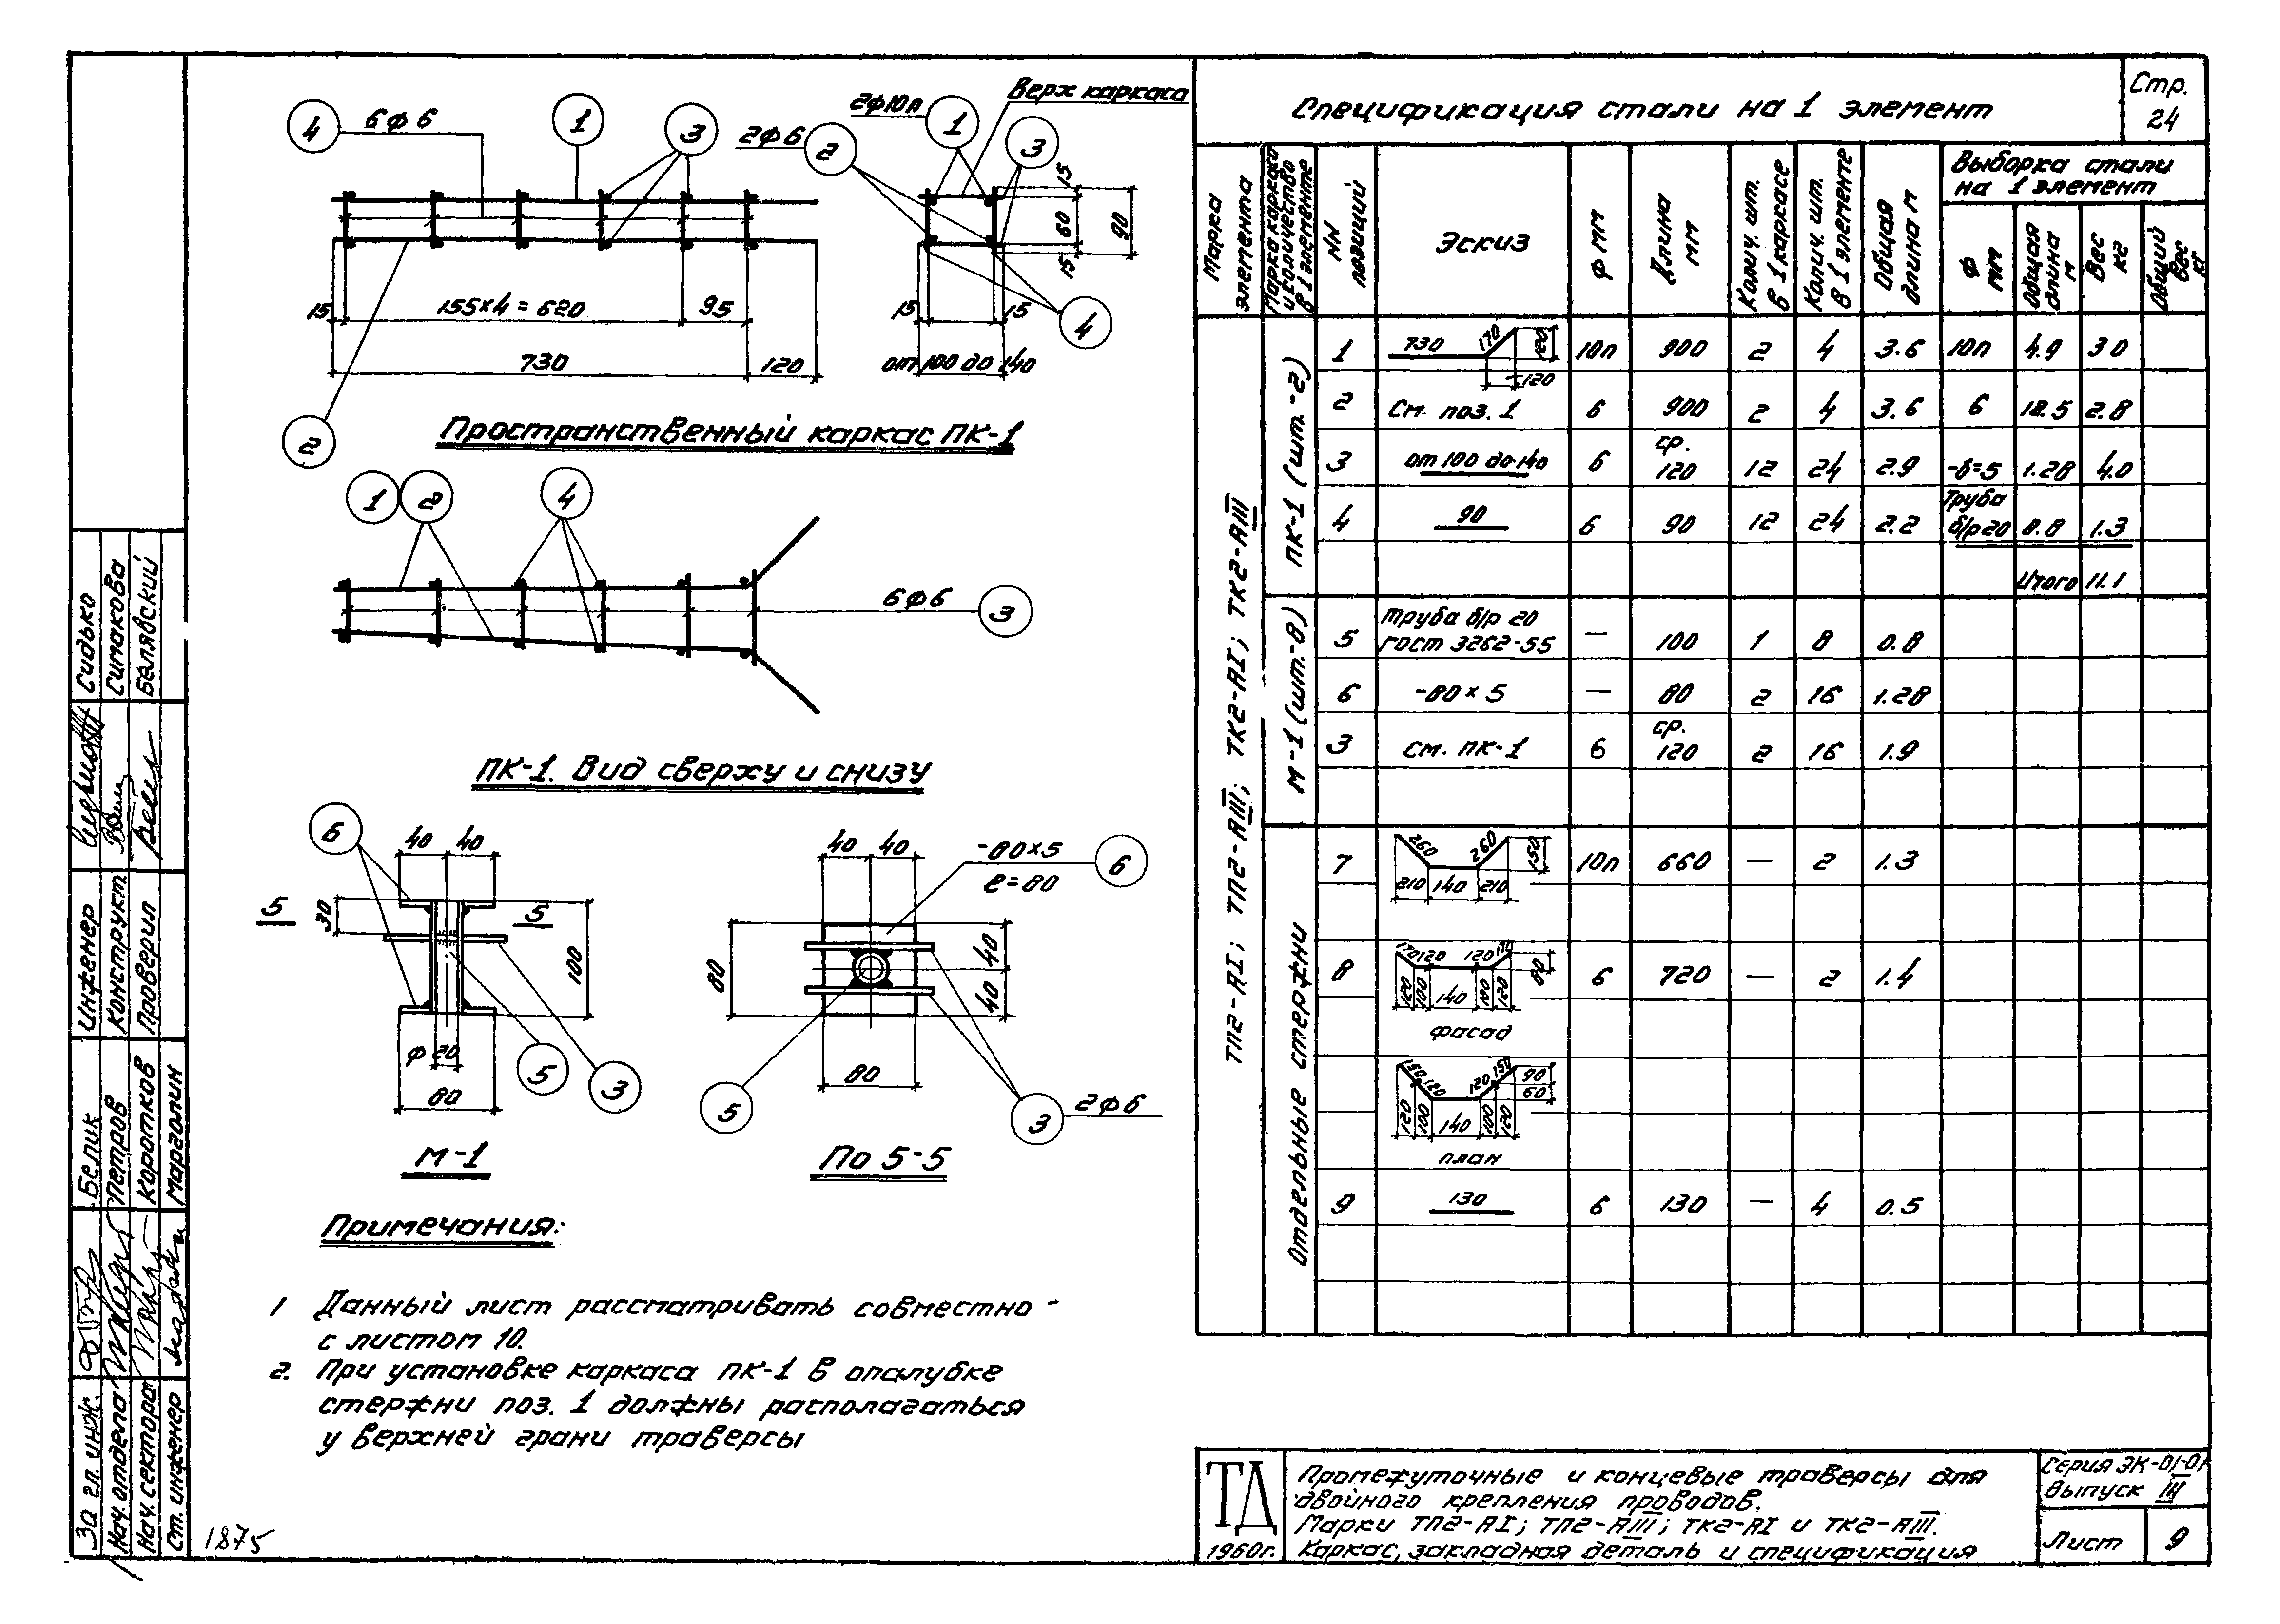 Стр.
24
Спецификация стали на 1 элемент
Марка элемента
Марка каркаса и количество в 1 элементе
NN позиций
Эскиз
Ф мм
Длина мм
Колич. шт. в 1 каркасе
Колич. шт. в 1 элементе
Общая длина м
Выборка стали на 1 элемент
Ф мм
Общая длина м
Вес кг
Общий вес кг
ТП2-АI; ТП2-АIII; ТК2-АI; ТК2-АIII
ПК-1 (шт.-2)
1 730 170 120 120 10п 900 2 4 3.6 10п 4.9 3.0
2 См. поз. 1 6 900 2 4 3.6 6 12.5 2.8
3 от 100 до 140 6 ср. 120 12 24 2.9 -δ=5 1.28 4.0
4 90 6 90 12 24 2.2 Труба б/р 20 0.8 1.3
Итого 11.1
М-1 (шт.-8)
5 Труба б/р 20 гост 3262-55 — 100 1 8 0.8
6 -80×5 — 80 2 16 1.28
3 См. ПК-1 6 ср. 120 2 16 1.9
Отдельные стержни
7 260 260 150 210 140 210 10п 660 — 2 1.3
8 170 120 120 170 80 120 100 140 100 120 6 720 — 2 1.4
фасад
150 120 120 150 90 60 120 100 140 100 120
план
9 130 6 130 — 4 0.5
4 6ф6 1 3
15 155×4=620 95
730 120
2
2ф10п 1 Верх каркаса
2ф6 2 3
15 60 15 90
15 15 4
от 100 до 140
Пространственный каркас ПК-1
1 2 4
6ф6 3
ПК-1. Вид сверху и снизу
6 40 40
5 5
30 100
ф20
80
5 3
М-1
40 40 -80×5 6
ℓ=80
80 40 40
80
5 3 2ф6
По 5-5
Примечания:
1 Данный лист рассматривать совместно -
с листом 10.
2. При установке каркаса ПК-1 в опалубке
стержни поз. 1 должны располагаться
у верхней грани траверсы
1875
Сидько
Симакова
Белявский
Инженер
Конструкт.
Проверил
Белик
Петров
Коротков
Марголин
За гл. инж.
Нач. отдела
Нач. сектора
Ст. инженер
ТД
1960г.
Промежуточные и концевые траверсы для
двойного крепления проводов.
Марки ТП2-АI; ТП2-АIII; ТК2-АI и ТК2-АIII.
Каркас, закладная деталь и спецификация
Серия ЭК-01-01
Выпуск III
Лист 9